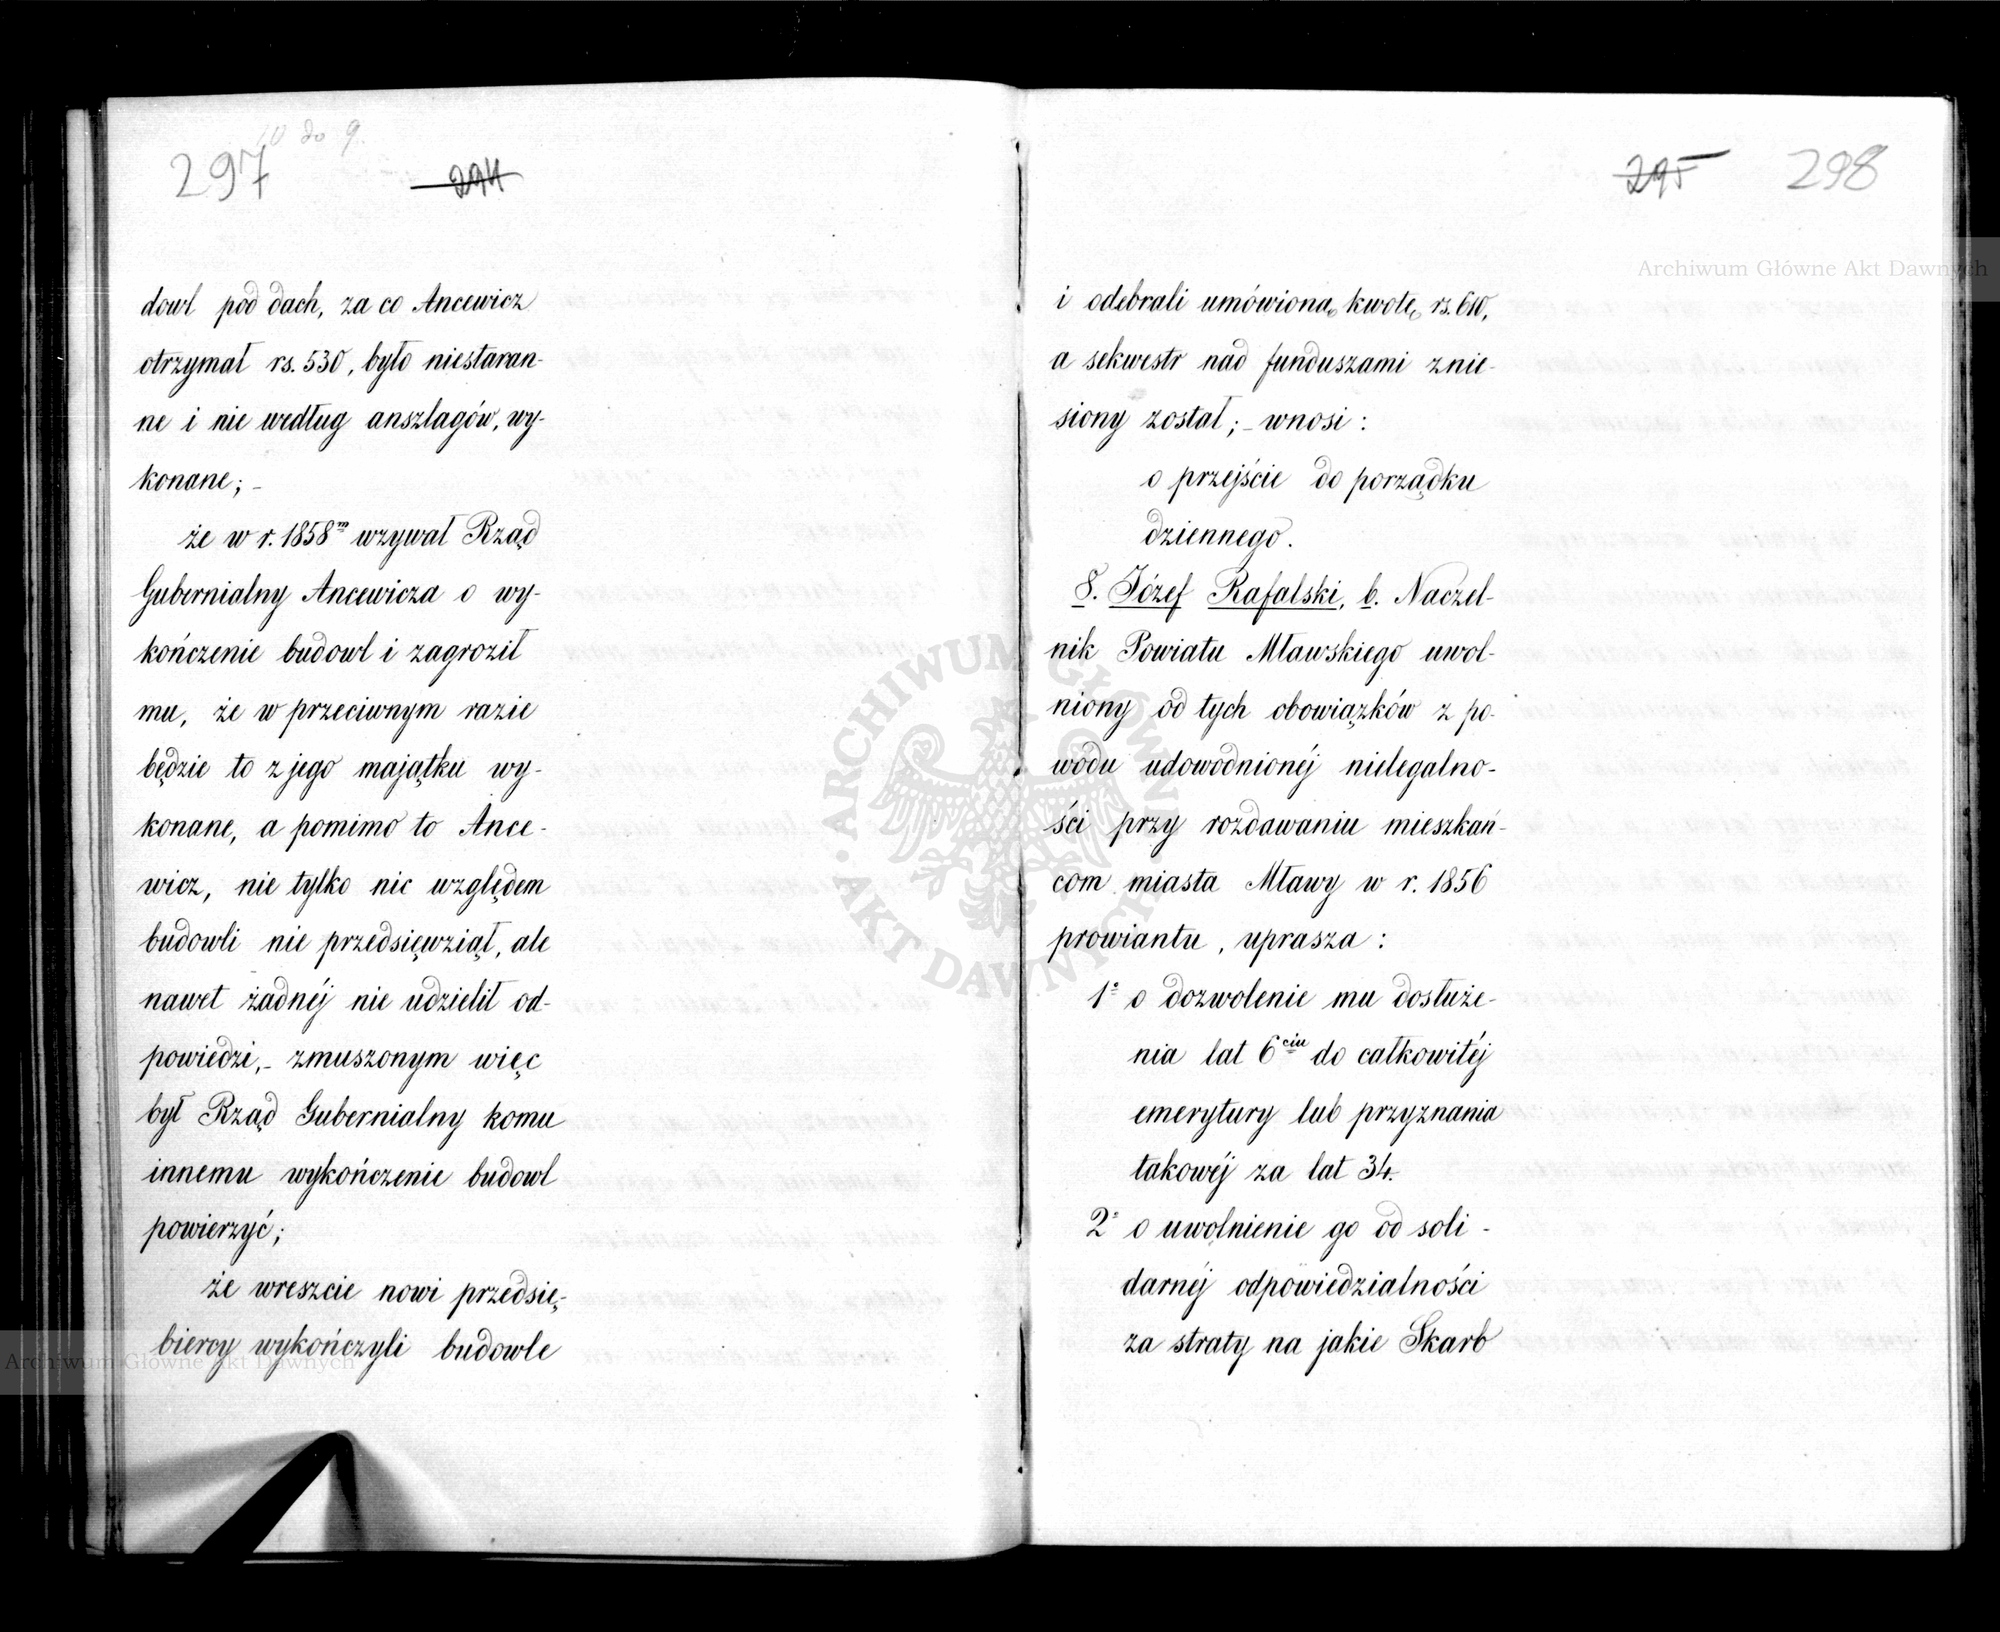 297
10 do 9.
294
dowl pod dach, za co Ancewicz
otrzymał rs. 530, było niestaran-
ne i nie według anszlagów, wy-
konane; -
że w r. 1858m wzywał Rząd
Gubernialny Ancewicza o wy-
kończenie budowl i zagroził
mu, że w przeciwnym razie
będzie to z jego majątku wy-
konane, a pomimo to Ance-
wicz, nie tylko nic względem
budowli nie przedsięwziął, ale
nawet żadnéj nie udzielił od-
powiedzi, - zmuszonym więc
był Rząd Gubernialny komu
innemu wykończenie budowl
powierzyć;
że wreszcie nowi przedsię-
biercy wykończyli budowle
295 298
i odebrali umówioną kwotę rs. 610,
a sekwestr nad funduszami znie-
siony został; - wnosi:
o przejście do porządku
dziennego.
8. Józef Rafalski, b. Naczel-
nik Powiatu Mławskiego uwol-
niony od tych obowiązków z po-
wodu udowodnionéj nielegalno-
ści przy rozdawaniu mieszkań-
com miasta Mławy w r. 1856
prowiantu, uprasza:
1° o dozwolenie mu dosłuże-
nia lat 6ciu do całkowitéj
emerytury lub przyznania
takowéj za lat 34.
2° o uwolnienie go od soli-
darnéj odpowiedzialności
za straty na jakie Skarb
Archiwum Główne Akt Dawnych
Archiwum Główne Akt Dawnych
ARCHIWUM GŁÓWNE AKT DAWNYCH